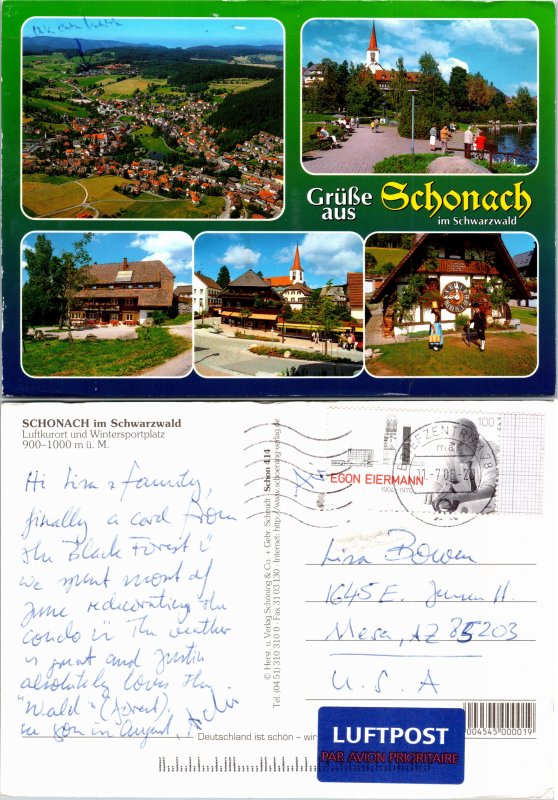 Grüße
aus Schonach
im Schwarzwald
SCHONACH im Schwarzwald
Luftkurort und Wintersportplatz
900–1000 m ü. M.
Hi Lisa & Family,
finally a card from
the Black Forest ü
we spent most of
June redecorating the
condo ü The weather
is great and Justin
absolutely loves the
"Wald" (forest).
see you in August
© Herst. u. Verlag Schöning & Co. + Gebr. Schmidt · Schon 414
Tel. (04 51) 310 310 0 · Fax 31 03 130 · Internet: http://www.schoening-verlag.de
Deutschland ist schön – wir
EGON EIERMANN
1904-1970
100
BRIEFZENTRUM 78
Lisa Bowen
1645 E. Jensen H.
Mesa, AZ 85203
U. S. A
004545 000019
LUFTPOST
PAR AVION PRIORITAIRE